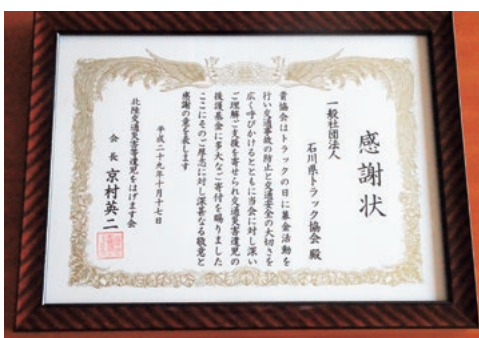 感謝状
一般社団法人
石川県トラック協会 殿
貴協会はトラックの日に募金活動を
行い交通事故の防止と交通安全の大切さを
広く呼びかけるとともに当会に対し深い
ご理解ご支援を寄せられ交通災害遺児の
後護基金に多大なご寄付を賜りました
ここにそのご厚志に対し深甚なる敬意と
感謝の意を表します
平成二十九年十月十七日
北陸交通災害等遺児をはげます会
会長 京村英二